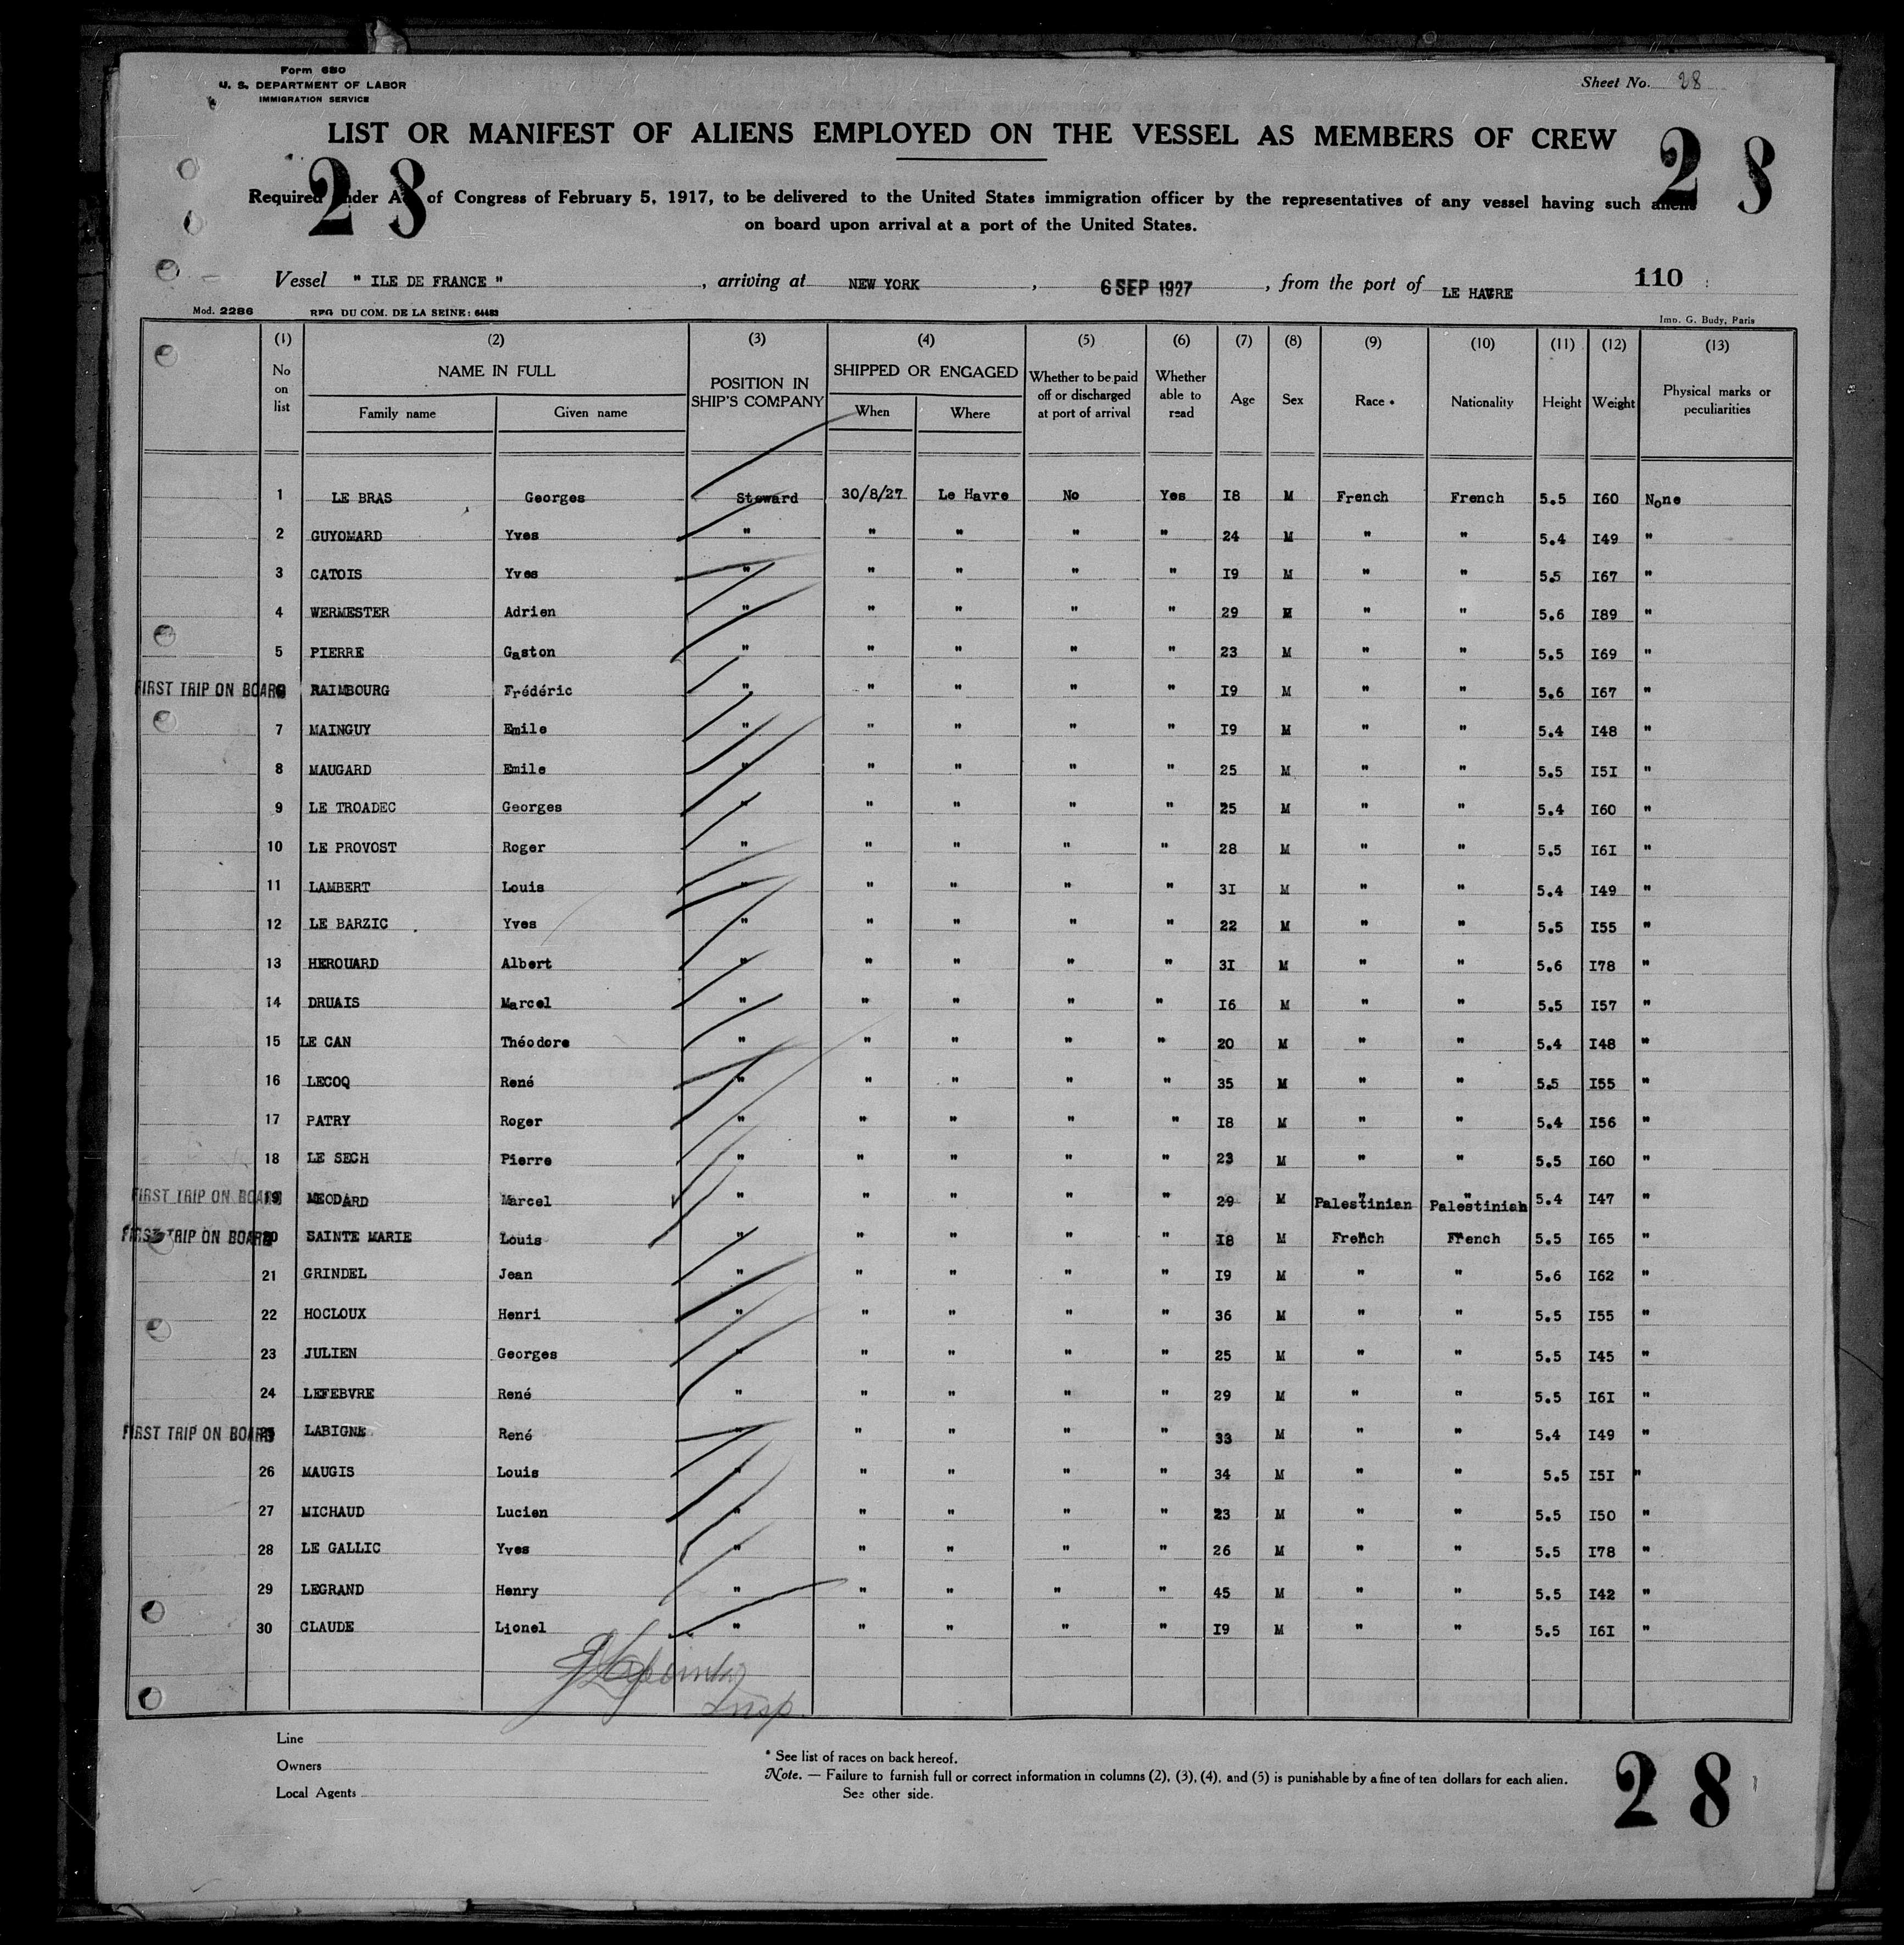 Form 680
U. S. DEPARTMENT OF LABOR
IMMIGRATION SERVICE
Sheet No. 28
LIST OR MANIFEST OF ALIENS EMPLOYED ON THE VESSEL AS MEMBERS OF CREW
28 28
Required under Act of Congress of February 5, 1917, to be delivered to the United States immigration officer by the representatives of any vessel having such aliens
on board upon arrival at a port of the United States.
Vessel " ILE DE FRANCE ", arriving at NEW YORK, 6 SEP 1927, from the port of LE HAVRE 110
Mod. 2286 REG DU COM. DE LA SEINE: 64483 Imp. G. Budy, Paris
(1) (2) (3) (4) (5) (6) (7) (8) (9) (10) (11) (12) (13)
No on list NAME IN FULL Family name Given name POSITION IN SHIP'S COMPANY SHIPPED OR ENGAGED When Where Whether to be paid off or discharged at port of arrival Whether able to read Age Sex Race * Nationality Height Weight Physical marks or peculiarities
1 LE BRAS Georges Steward 30/8/27 Le Havre No Yes I8 M French French 5.5 I60 None
2 GUYOMARD Yves " " " " " 24 M " " 5.4 I49 "
3 CATOIS Yves " " " " " I9 M " " 5.5 I67 "
4 WERMESTER Adrien " " " " " 29 M " " 5.6 I89 "
5 PIERRE Gaston " " " " " 23 M " " 5.5 I69 "
FIRST TRIP ON BOARD 6 RAIMBOURG Frédéric " " " " " I9 M " " 5.6 I67 "
7 MAINGUY Emile " " " " " I9 M " " 5.4 I48 "
8 MAUGARD Emile " " " " " 25 M " " 5.5 I5I "
9 LE TROADEC Georges " " " " " 25 M " " 5.4 I60 "
10 LE PROVOST Roger " " " " " 28 M " " 5.5 I6I "
11 LAMBERT Louis " " " " " 3I M " " 5.4 I49 "
12 LE BARZIC Yves " " " " " 22 M " " 5.5 I55 "
13 HEROUARD Albert " " " " " 3I M " " 5.6 I78 "
14 DRUAIS Marcel " " " " " I6 M " " 5.5 I57 "
15 LE CAN Théodore " " " " " 20 M " " 5.4 I48 "
16 LECOQ René " " " " " 35 M " " 5.5 I55 "
17 PATRY Roger " " " " " I8 M " " 5.4 I56 "
18 LE SECH Pierre " " " " " 23 M " " 5.5 I60 "
FIRST TRIP ON BOARD 19 MEODARD Marcel " " " " " 29 M Palestinian Palestinian 5.4 I47 "
FIRST TRIP ON BOARD 20 SAINTE MARIE Louis " " " " " I8 M French French 5.5 I65 "
21 GRINDEL Jean " " " " " I9 M " " 5.6 I62 "
22 HOCLOUX Henri " " " " " 36 M " " 5.5 I55 "
23 JULIEN Georges " " " " " 25 M " " 5.5 I45 "
24 LEFEBVRE René " " " " " 29 M " " 5.5 I6I "
FIRST TRIP ON BOARD 25 LABIGNE René " " " " " 33 M " " 5.4 I49 "
26 MAUGIS Louis " " " " " 34 M " " 5.5 I5I "
27 MICHAUD Lucien " " " " " 23 M " " 5.5 I50 "
28 LE GALLIC Yves " " " " " 26 M " " 5.5 I78 "
29 LEGRAND Henry " " " " " 45 M " " 5.5 I42 "
30 CLAUDE Lionel " " " " " I9 M " " 5.5 I6I "
Insp
Line
Owners
Local Agents
* See list of races on back hereof.
Note. — Failure to furnish full or correct information in columns (2), (3), (4), and (5) is punishable by a fine of ten dollars for each alien.
See other side.
28